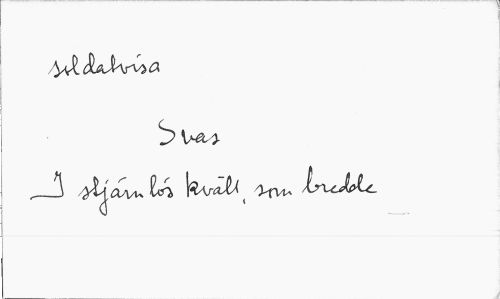 soldatvisa
Svas
I stjärnlös kväll, som bredde